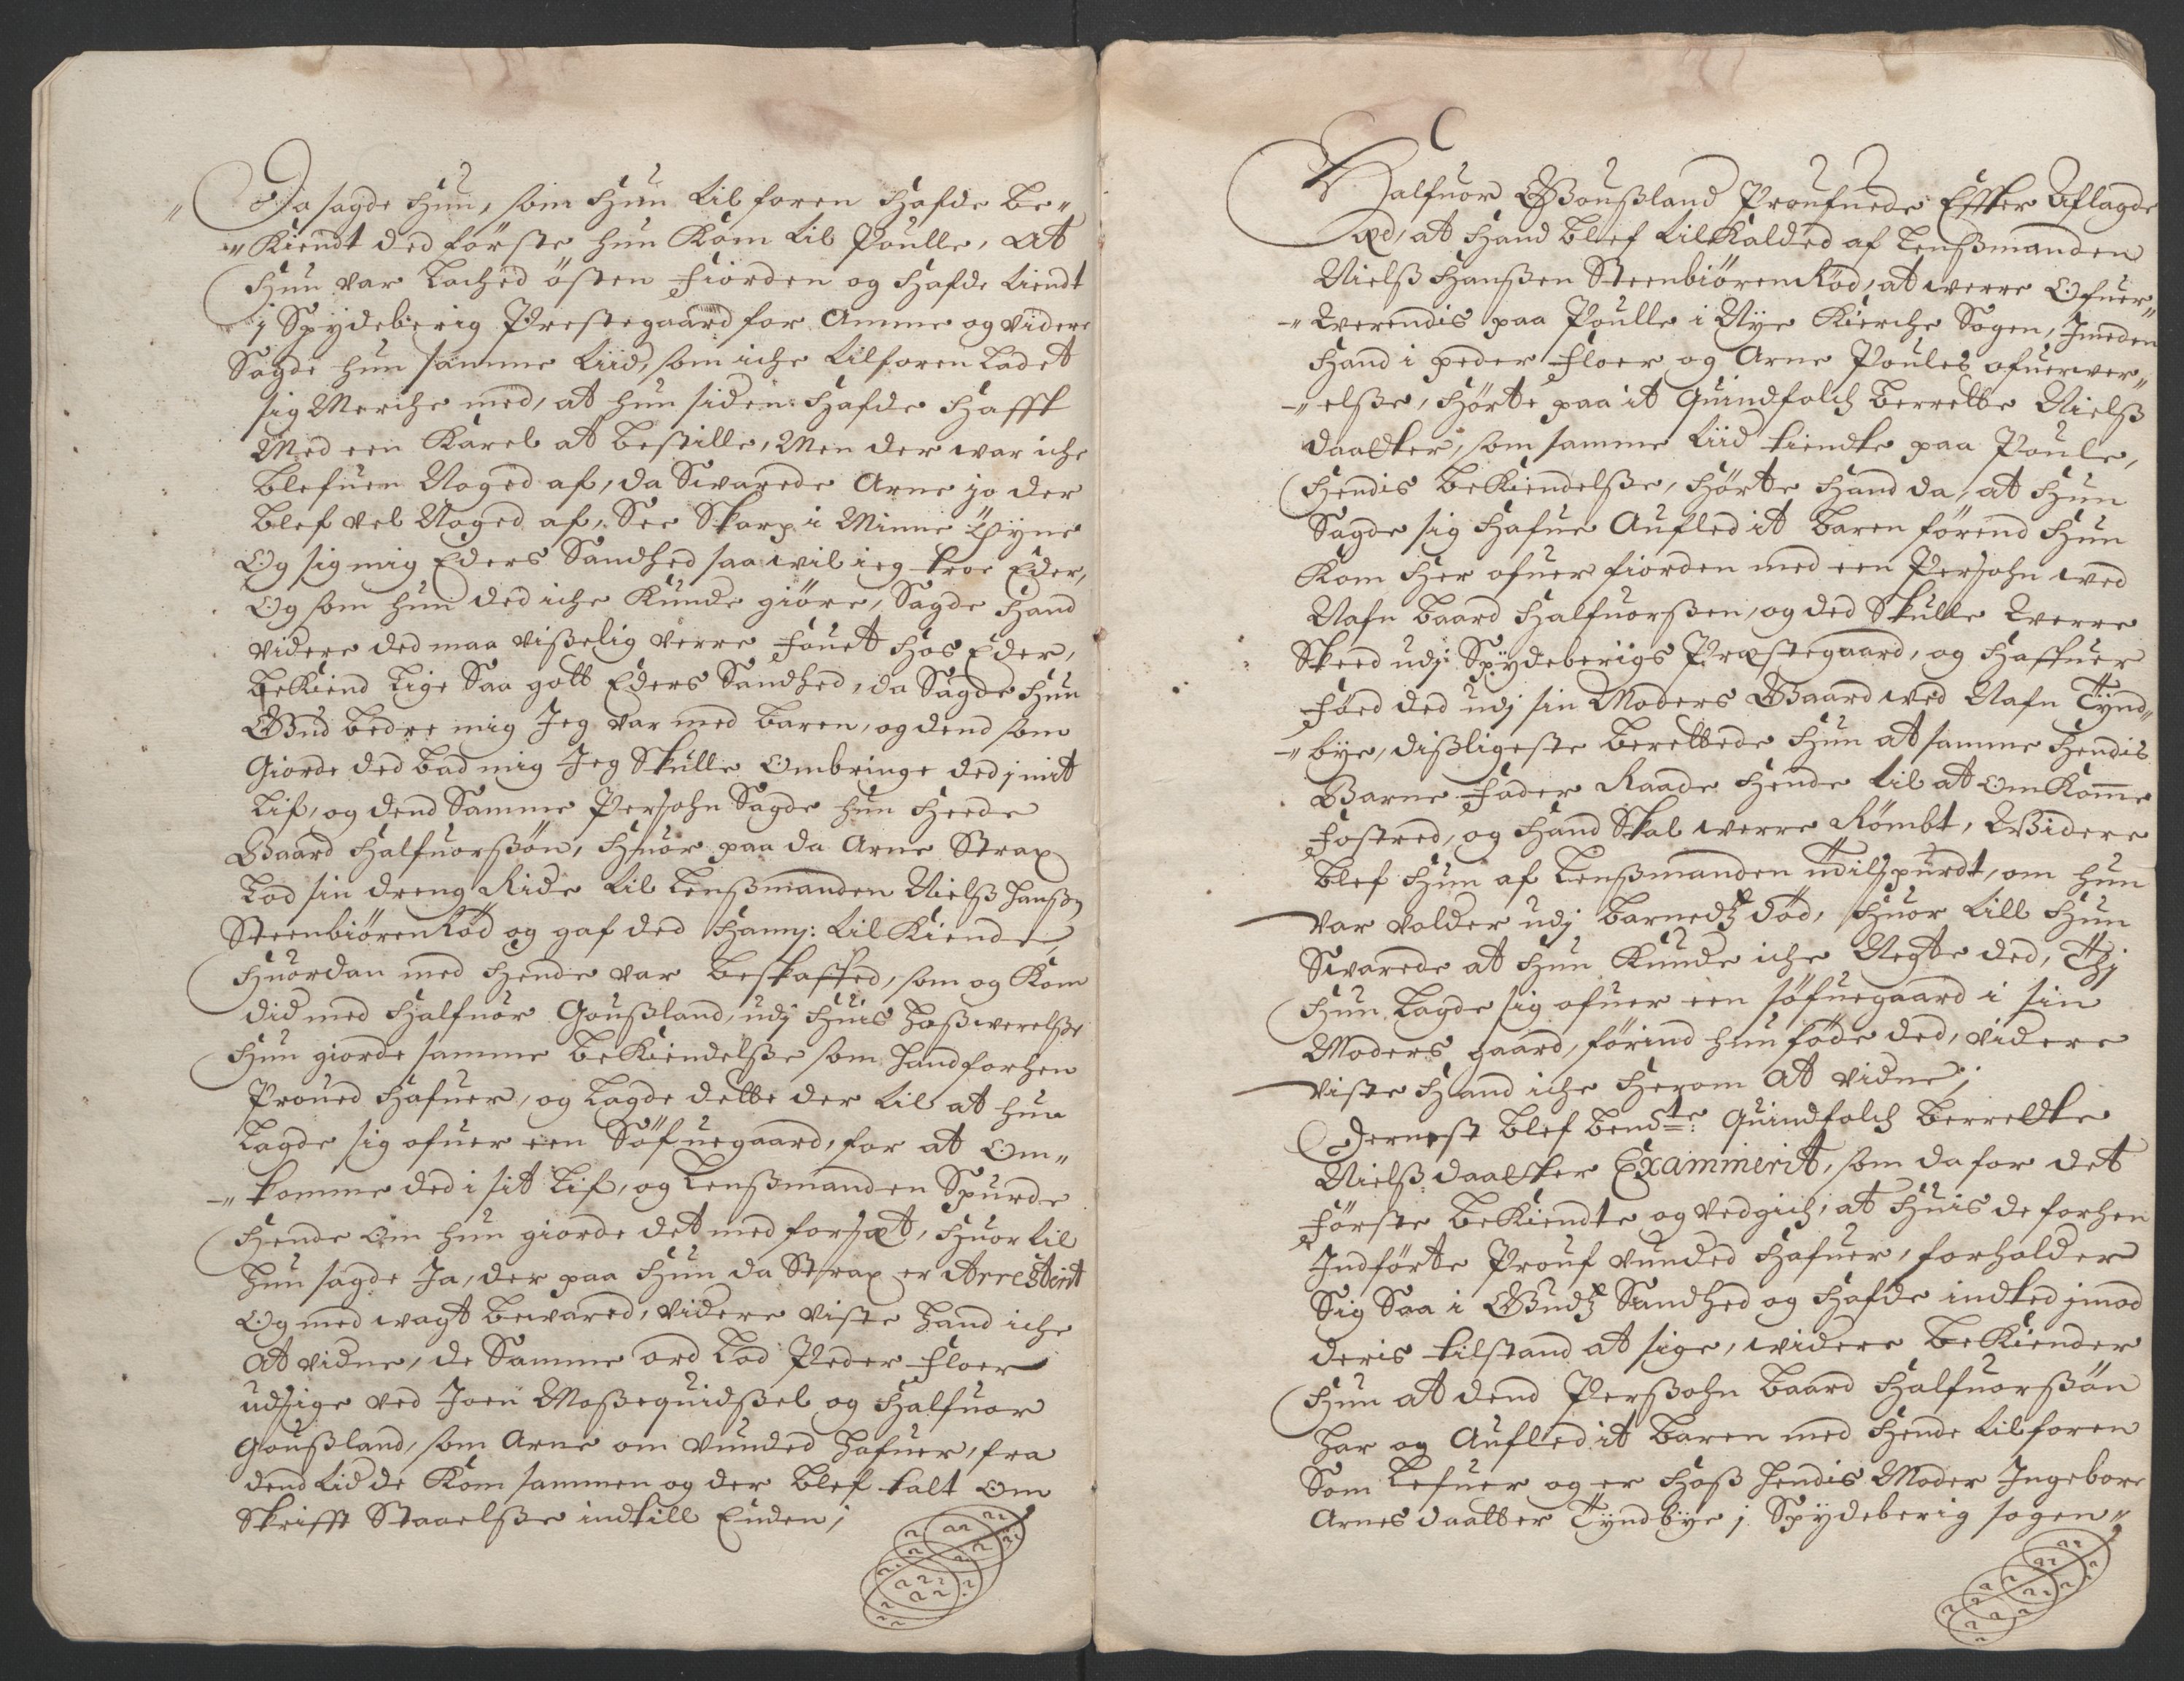 Da sagde Hun, som Hun til foren Hafde Be„
„Kiendt ded förste hun Kom til Poulle, At
Hun var Lached östen Fiorden og Hafde tiendt
j Spÿdeberig Prestegaard for Amme og videre
Sagde hun samme tiid, som iche tilforen Ladet
sig Merche med, at hun siden Hafde Hafft
Med een Karel at bestille, Men der war iche
blefuen Noged af, da Swarede Arne jo der
blef vel Noged af, See Skarp i Minne Öÿne
Og sig mig Eders Sandhed saa wil ieg troe Eder,
Og som hun ded iche Kunde giöre, Sagde Hand
videre ded maa vißelig verre Fouet Hos Eder,
beKiend Lige Saa gott Eders Sandhed, da Sagde Hun
Gud bedre mig Jeg var med baren, og dend som
Giorde ded bad mig Jeg Skulle Ombringe ded j mit
Lif, og dend Samme Persohn Sagde hun Heede
Baard Halfuorßön, Huor paa da Arne Strax
Lod sin dreng Ride til Lenßmanden Nielß Hanßen
SteenbiörenRöd og gaf ded Hannem: til Kiende
Huordan med Hende var beskaffed, som og Kom
did med Halfuor Goußland, udj Huis Hoßwerelße
Hun giorde samme beKiendelße som Hand forhen
Proued Hafuer, og Lagde dette der til at hun
Lagde sig ofuer een Söfuegaard, for at Om„
„komme ded i sit Lif, og Lenßmanden Spurde
Hende Om hun giorde det med forsæt, Huor til
Hun sagde Ja, der paa Hun da Strax er Arresterit
Og med wagt bewared, videre viste Hand iche
At vidne, de Samme ord Lod Peder Floer
udsige ved Joen Moßequidßel og Halfuor
Goußland, som Arne om vunded Hafuer, fra
dend tid de Kom sammen og der blef talt Om
Skrifft Staaelße indtill Enden;
Halfuor Goußland Proufuede Effter Aflagde
æd, at Hand blef tilKalded af Lenßmanden
Nielß Hanßen SteenbiörenRöd, at werre Ofuer„
„werendis paa Poulle i Nÿe Kierche Sogen, Jmeden
Hand i peder Floer og Arne Poules ofuerwer„
„elße, Hörte paa it Quindfolch Berrette Nielß
daatter, som samme tiid tiendte paa Poule,
Hendis BeKiendelße, Hörte Hand da, at Hun
Sagde sig Hafue Aufled it baren förend Hun
Kom Her ofuer fiorden med een Persohn ved
Nafn Baard Halfuorßen, og ded Skulle werre
Skeed udj Spÿdeberigs Præstegaard, og Haffuer
Föed ded udj sin Moders Gaard ved Nafn Tÿnd„
„bÿe, dißligeste berettede Hun at samme Hendis
Barne Fader Raade Hende til at OmKomme
Fostred, og Hand Skal werre Römbt, Widere
blef Hun af Lenßmanden tilspurdt, om hun
var volder udj barnedtz död, Huor till Hun
Swarede at Hun Kunde iche Negte ded, Thj
Hun Lagde sig ofuer een söfuegaard i sin
Moders gaard, förind hun föde ded, videre
viste Hand iche Herom at vidne;
Dernest blef bendte: Quindfolch Berrette
Nielß daatter Examinerit, som da for det
Förste beKiendte og vedgich, at Huis de forhen
Indförte Prouf vunded Hafuer, forholder
Sig Saa i Gudtz Sandhed og Hafde indted jmod
deris tilstand at sige, widere beKiender
Hun at dend Perßohn Baard Halfuorßön
Har og Aufled it baren med Hende tilforen
Som Lefuer og er Hoß Hendis Moder Ingebore
Arnes daatter Tÿndbÿe j Spÿdeberig sogen„